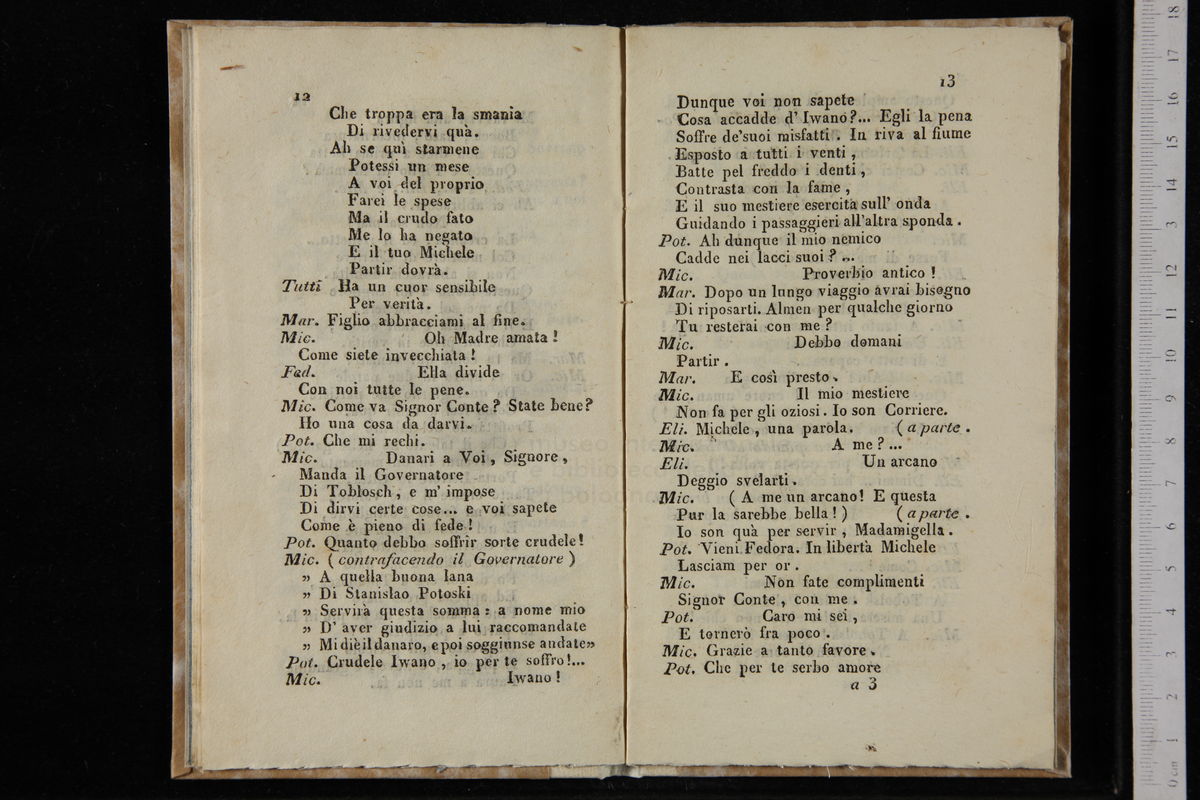 12
Che troppa era la smania
Di rivedervi quà.
Ah se quì starmene
Potessi un mese
A voi del proprio
Farei le spese
Ma il crudo fato
Me lo ha negato
E il tuo Michele
Partir dovrà.
Tutti Ha un cuor sensibile
Per verità.
Mar. Figlio abbracciami al fine.
Mic. Oh Madre amata!
Come siete invecchiata!
Fed. Ella divide
Con noi tutte le pene.
Mic. Come va Signor Conte? State bene?
Ho una cosa da darvi.
Pot. Che mi rechi.
Mic. Danari a Voi, Signore,
Manda il Governatore
Di Toblosch, e m' impose
Di dirvi certe cose... e voi sapete
Come è pieno di fede!
Pot. Quanto debbo soffrir sorte crudele!
Mic. (contrafacendo il Governatore)
„ A quella buona lana
„ Di Stanislao Potoski
„ Servirà questa somma: a nome mio
„ D' aver giudizio a lui raccomandate
„ Mi diè il danaro, e poi soggiunse andate„
Pot. Crudele Iwano, io per te soffro!...
Mic. Iwano!
13
Dunque voi non sapete
Cosa accadde d' Iwano?... Egli la pena
Soffre de' suoi misfatti. In riva al fiume
Esposto a tutti i venti,
Batte pel freddo i denti,
Contrasta con la fame,
E il suo mestiere esercita sull' onda
Guidando i passaggieri all' altra sponda.
Pot. Ah dunque il mio nemico
Cadde nei lacci suoi?...
Mic. Proverbio antico!
Mar. Dopo un lungo viaggio avrai bisogno
Di riposarti. Almen per qualche giorno
Tu resterai con me?
Mic. Debbo domani
Partir.
Mar. E così presto.
Mic. Il mio mestiere
Non fa per gli oziosi. Io son Corriere.
Eli. Michele, una parola. (a parte.
Mic. A me?...
Eli. Un arcano
Deggio svelarti.
Mic. (A me un arcano! E questa
Pur la sarebbe bella!) (a parte.
Io son quà per servir, Madamigella.
Pot. Vieni Fedora. In libertà Michele
Lasciam per or.
Mic. Non fate complimenti
Signor Conte, con me.
Pot. Caro mi sei,
E tornerò fra poco.
Mic. Grazie a tanto favore.
Pot. Che per te serbo amore
a 3